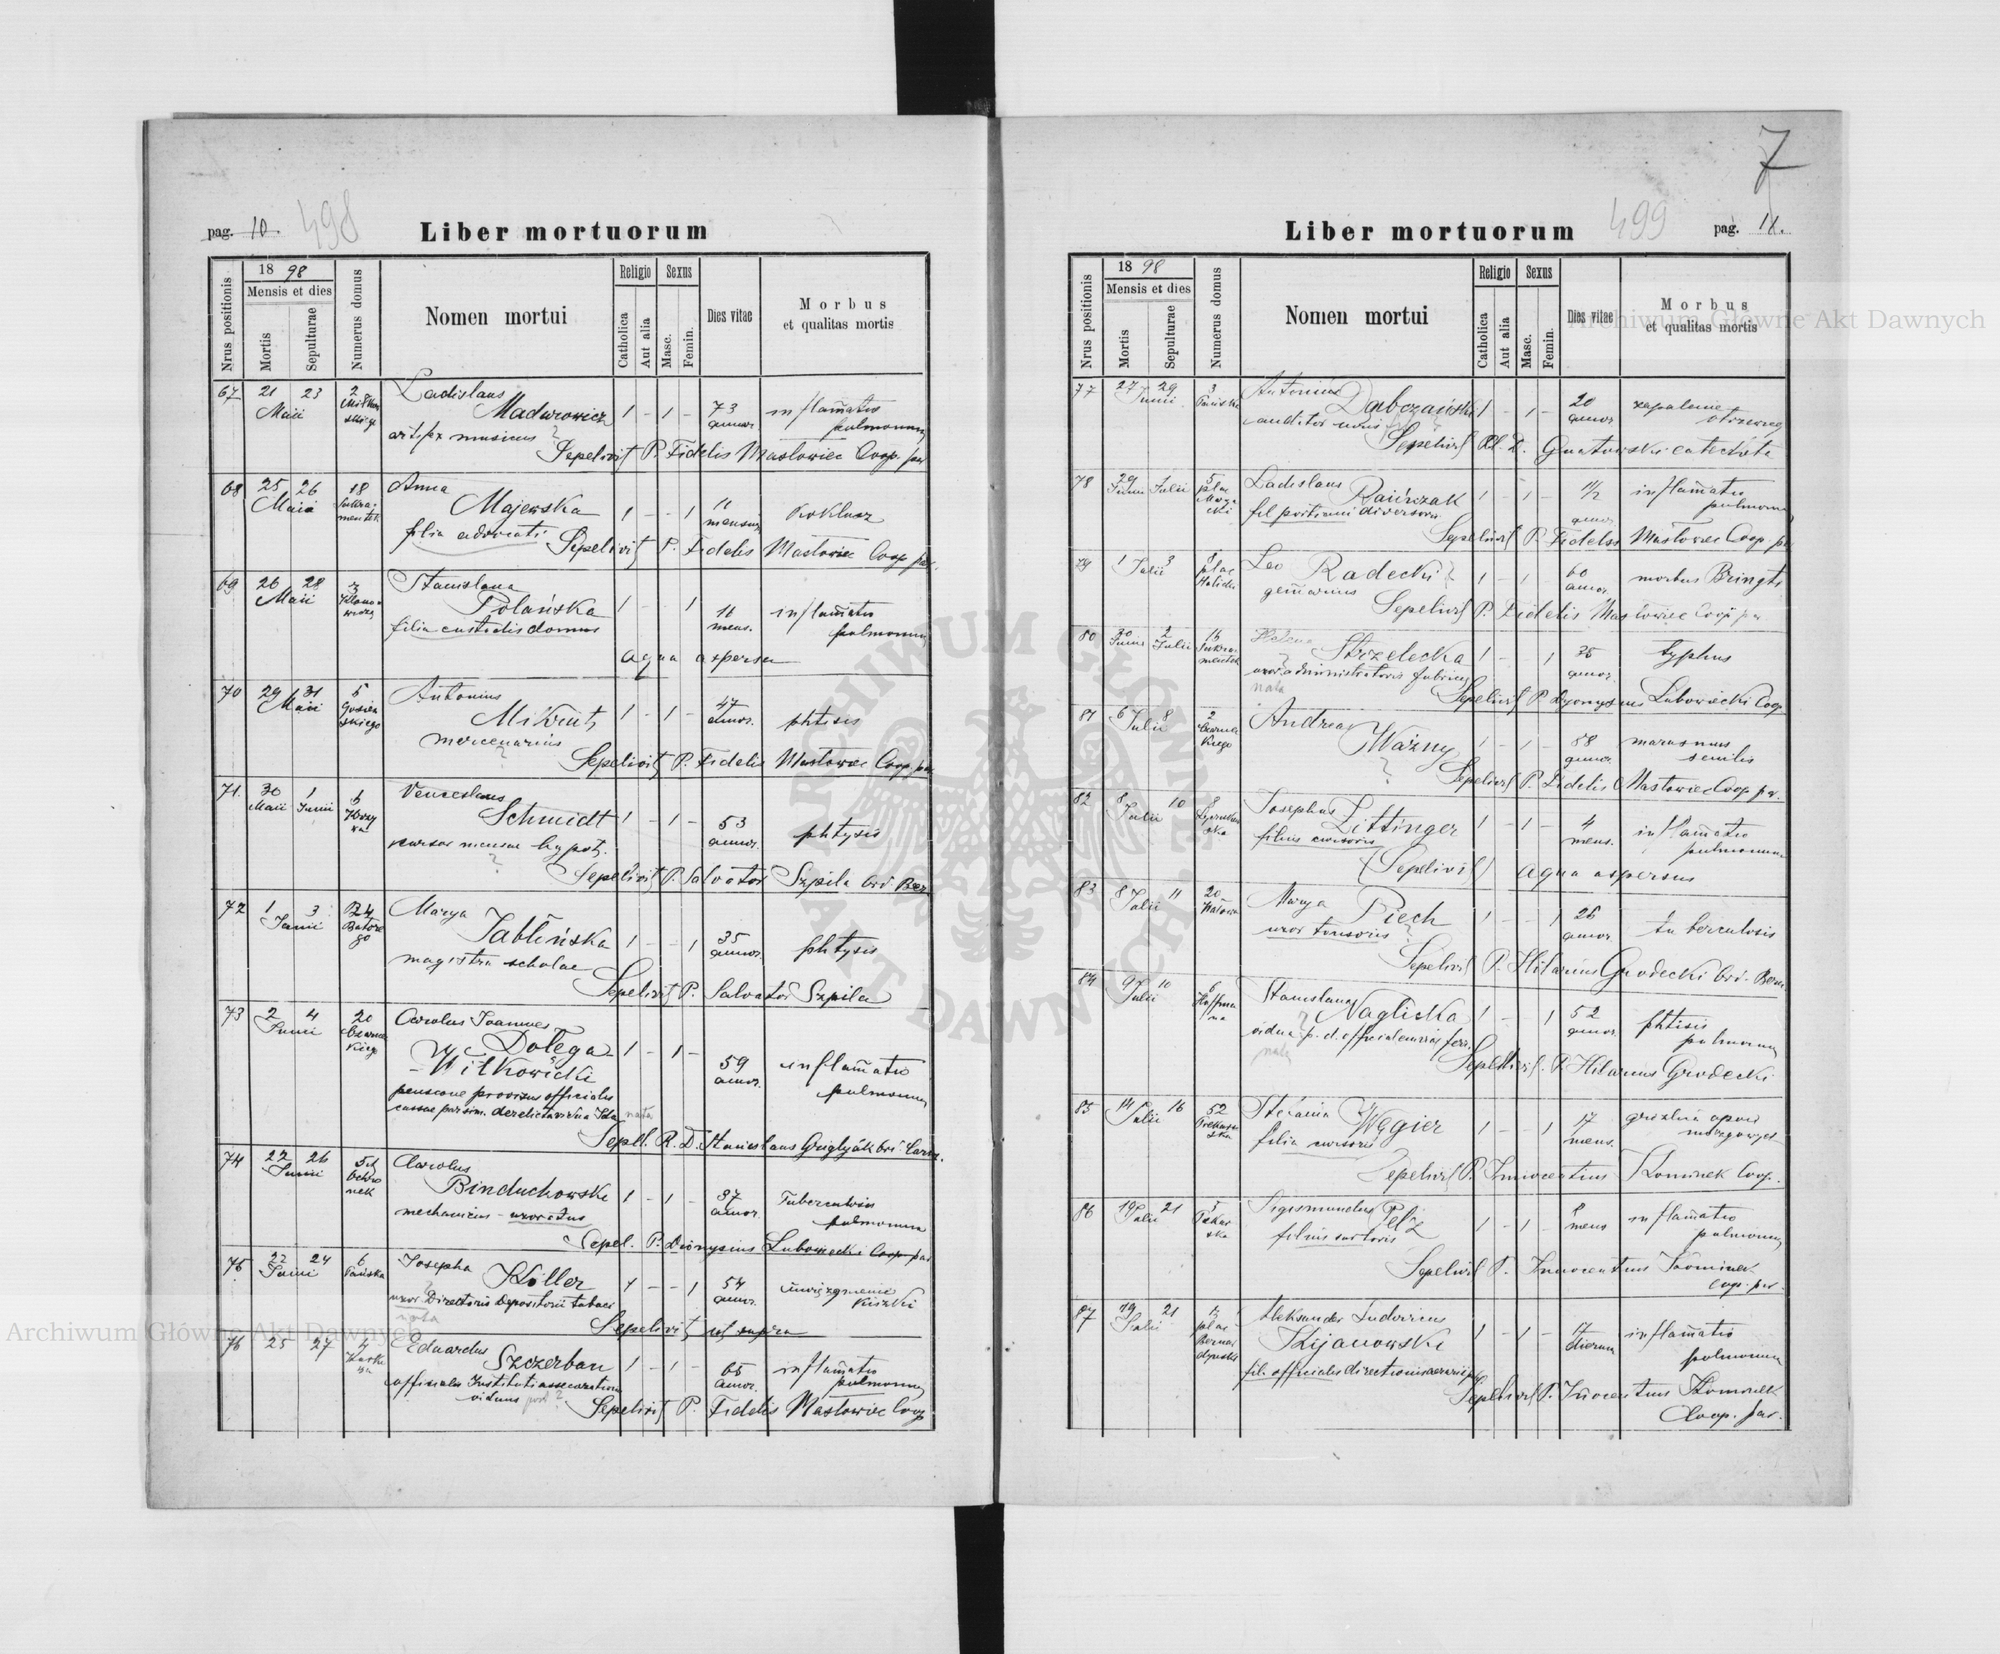 7
pag. 10. 498
Liber mortuorum
Nrus positionis
18 98
Mensis et dies
Mortis
Sepulturae
Numerus domus
Nomen mortui
Religio
Catholica
Aut alia
Sexus
Masc.
Femin.
Dies vitae
Morbus
et qualitas mortis
67 21 23 2 Ladislaus
Maii Madurowicz 1 - 1 - 73 inflam̄atio
annor. pulmonum
artifex musicus ?
Sepelivit P. Fidelis Masłowiec Coop. par
68 25 26 18 Anna
Maii Majewska 1 - - 1 11 Koklusz
mensium
filia advocati Sepelivit P. Fidelis Masłowiec Coop. par.
69 26 28 3 Stanislava
Maii Polańska 1 - 1 11 inflam̄atio
mens. pulmonum
filia custodis domus
aqua aspersa
70 29 31 5 Antonius
Maii 1 - 1 - 47 phtisis
annor.
mercenarius
?
Sepelivit P. Fidelis Masłowiec Coop. par
71. 30 1 6 Venceslaus
Maii Junii Schmidt 1 - 1 - 53 phtysis
annor.
cursor mensae hypot.
?
Sepelivit P. Salvator Szpila ord. Ber.
72 1 3 24 Marya
Junii Batorego Jablińska 1 - - 1 35 phtysis
annor.
magistra scholae
Sepelivit P. Salvator Szpila
73 2 4 20 Carolus Joannes
Junii Czarneckiego Dołęga- 1 - 1 - 59 inflam̄atio
annor. pulmonum
Witkowicki
pensione provisus officialis
nata
Sepel. R. D. Stanislaus
74 22 26 Carolus
Junii Binduchowski 1 - 1 - 37 Tuberculosis
annor. pulmonum
mechanicus - uxoratus
Sepel. P. Dionysius Lubowiecki Coop. par
75 22 24 6 Josepha
Junii Pańska Köller 1 - - 1 54
annor. kiszki
uxor Directoris Depositorii tabaci
nata
Sepelivit ut supra
76 25 27 4 Eduardus
Szczerban 1 - 1 - 65 inflam̄atio
annor. pulmonum
officialis Instituti assecurationum
viduus post ?
Sepelivit P. Fidelis Masłowiec Coop
Liber mortuorum
499 pag. 11.
Nrus positionis
18 98
Mensis et dies
Mortis
Sepulturae
Numerus domus
Nomen mortui
Religio
Catholica
Aut alia
Sexus
Masc.
Femin.
Dies vitae
Morbus
et qualitas mortis
77 27 29 3 Antonius
Junii Pańska Dabczański 1 - 1 - 20 zapalenie
annor. otrzewnej
auditor
Sepelivit Rl. D. Gnatowski catecheta
78 29 Julii 5 Ladislaus
Junii plac Maryacki Raińczak 1 - 1 - 1 1/2 inflam̄atio
annor. pulmonum
Sepelivit P. Fidelis Masłowiec Coop. par
79 1 3 8 Leo
Julii plac Halicki Radecki 1 - 1 - 60 morbus Brightii
annor.
Sepelivit P. Fidelis Masłowiec Coop par
80 30 2 16 Helena
Junii Julii Strzelecka 1 - - 1 35 typhus
annor.
uxor administratoris fabricae
nata
Sepelivit P. Dyonysius Lubowiecki Coop.
81 6 8 2 Andreas
Julii Czarneckiego Ważny 1 - 1 - 88 marasmus
annor. senilis
?
Sepelivit P. Fidelis Masłowiec Coop par.
82 8 10 8 Josephus
Julii Zittinger 1 - 1 - 4 inflam̄atio
mens. pulmonum
filius cursoris
(Sepelivit) aqua aspersus
83 8 11 20 Marya
Julii Wałowa Piech 1 - - 1 26 tuberculosis
annor.
uxor tonsoris ?
Sepelivit P. Hilarius Grodecki ord. Bern.
84 9 10 6 Stanislava
Julii Hoffmana Naglicka 1 - - 1 52 phtisis
annor. pulmonum
vidua p. d. officialem viae ferr.
nata
Sepelivit P. Hilarius Grodecki
85 14 16 52 Stefania
Julii Węgier 1 - - 1 17 gruźlica opon
mens. mózgowych
filia cursoris
Sepelivit P. Innocentius Kominek Coop.
86 19 21 5 Sigismundus
Julii Piekarska Pelz 1 - 1 - 8 inflam̄atio
mens pulmonum
filius sartoris
Sepelivit P. Innocentius Kominek
Coop. par.
87 19 21 Aleksander Ludovicus
Julii plac Bernardyński Kijanowski 1 - 1 - 17 inflam̄atio
dierum pulmonum
Sepelivit P. Innocentius Kominek
Coop. par.
Archiwum Główne Akt Dawnych
Archiwum Główne Akt Dawnych
ARCHIWUM GŁÓWNE AKT DAWNYCH